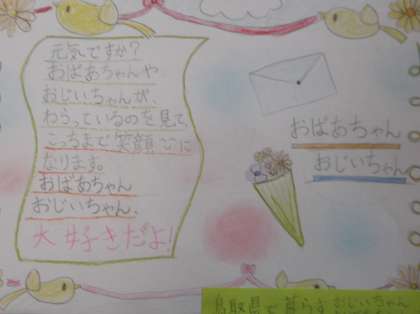 元気ですか?
おばあちゃんや
おじいちゃんが、
わらっているのを見て、
こっちまで笑顔に
なります。
おばあちゃん
おじいちゃん、
大好きだよ!
おばあちゃん
おじいちゃん
鳥取県で暮らすおじいちゃん